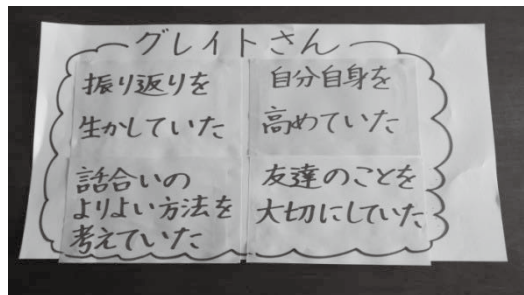 グレイトさん
振り返りを
生かしていた
自分自身を
高めていた
話合いの
よりよい方法を
考えていた
友達のことを
大切にしていた